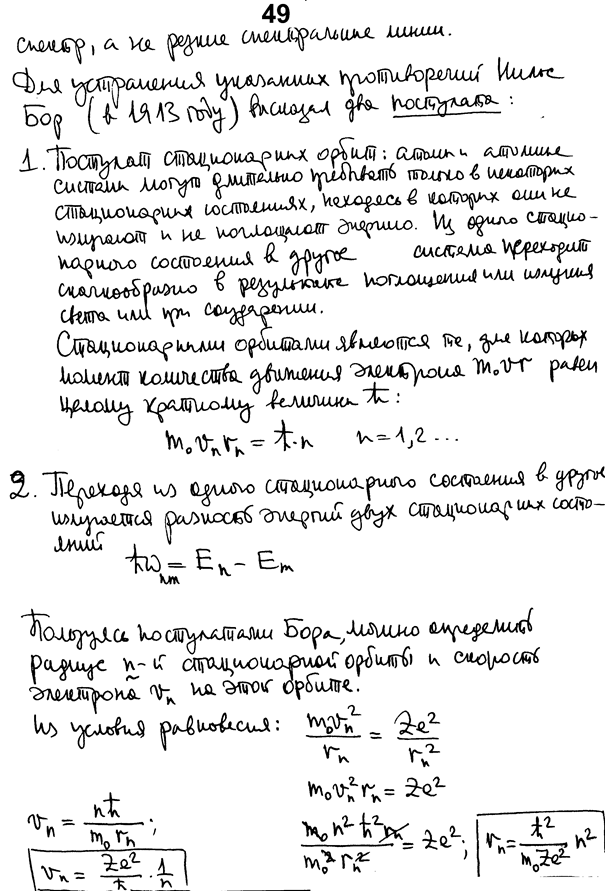 49
спектр, а не резкие спектральные линии.
Для устранения указанных противоречий Нильс
Бор (в 1913 году) высказал два постулата:
1. Постулат стационарных орбит: атом и атомные
системы могут длительно пребывать только в некоторых
стационарных состояниях, находясь в которых они не
излучают и не поглощают энергию. Из одного стацио-
нарного состояния в другое система переходит
скачкообразно в результате поглощения или излучения
света или при соударении.
Стационарными орбитами являются те, для которых
момент количества движения электрона m₀vr равен
целому кратному величины ħ:
m₀vₙrₙ = ħ·n    n = 1,2 ...
2. Переходя из одного стационарного состояния в другое
излучается разность энергий двух стационарных состо-
яний
ħωₙₘ = Eₙ − Eₘ
Пользуясь постулатами Бора, можно определить
радиус n-й стационарной орбиты и скорость
электрона vₙ на этой орбите.
Из условия равновесия: m₀vₙ²/rₙ = Ze²/rₙ²
m₀vₙ²rₙ = Ze²
vₙ = nħ/(m₀rₙ);    m₀n²ħ²rₙ/(m₀²rₙ²) = Ze²;    rₙ = ħ²/(m₀Ze²) n²
vₙ = Ze²/ħ · 1/n